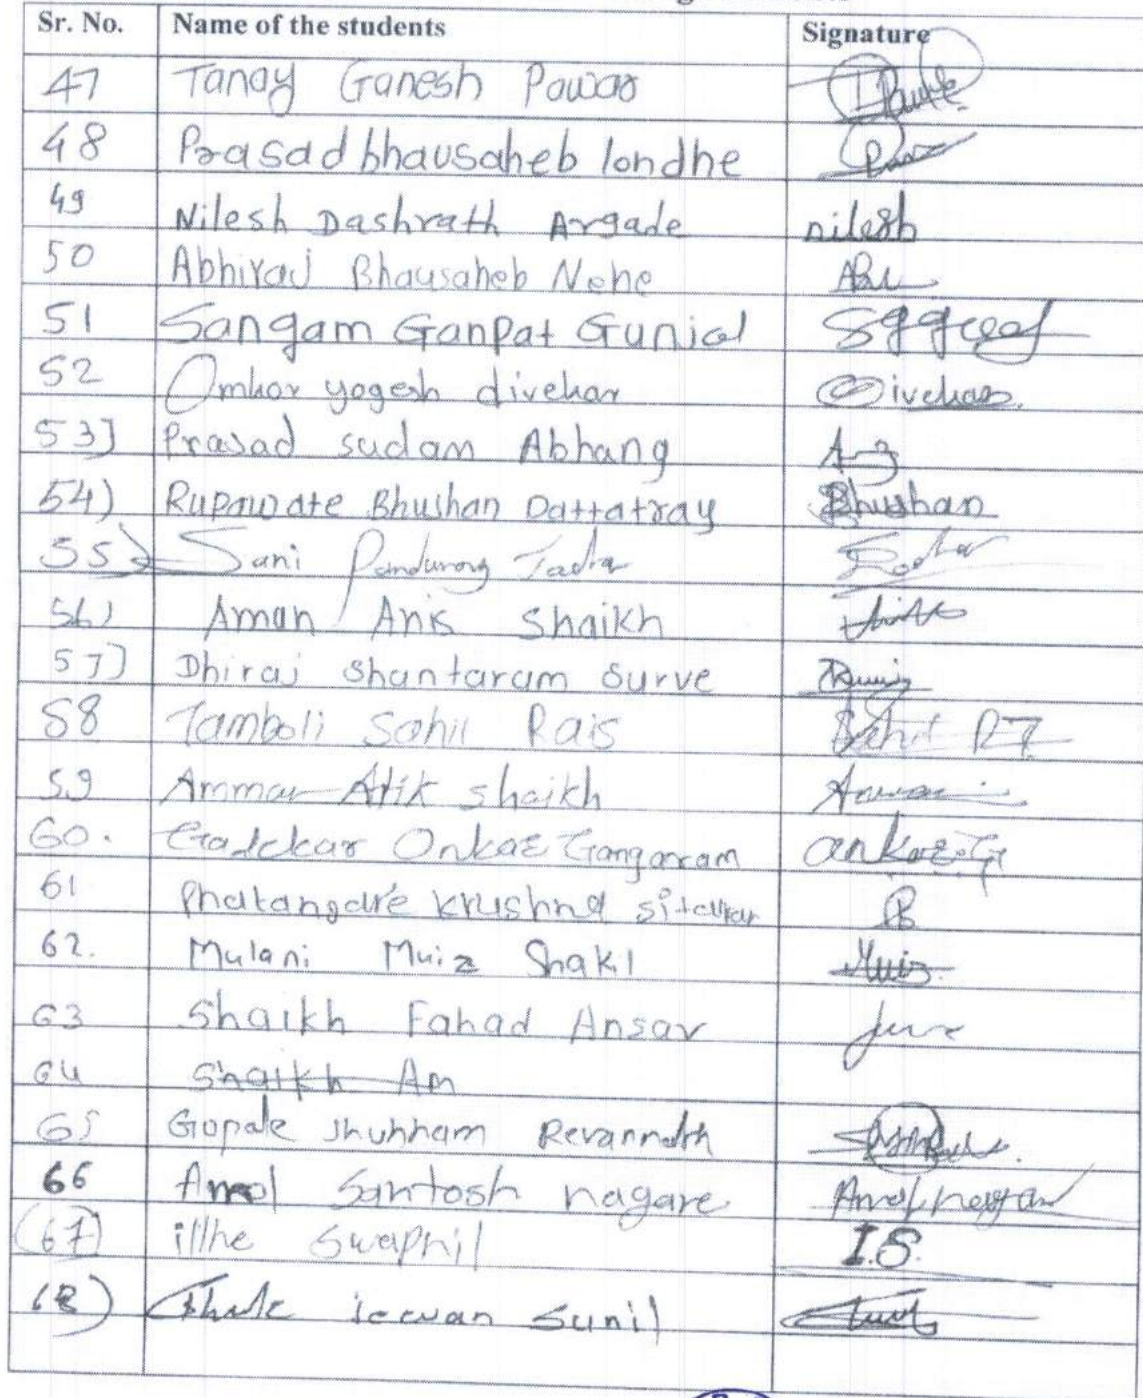 Sr. No. Name of the students Signature
47 Tanay Ganesh Pawar
48 Prasad bhausaheb londhe
49 Nilesh Dashrath Argade nilesh
50 Abhiraj Bhausaheb Nehe
51 Sangam Ganpat Gunjal
52 Omkar yogesh divekar Divekar
53] Prasad sudam Abhang
54) Rupawate Bhushan Dattatray Bhushan
55) Sani Pandurang
56) Aman Anis Shaikh
57) Dhiraj Shantaram Surve
58 Tamboli Sahil Rais Sahil RT
59 Ammar Atik shaikh
60. Gadekar Onkar Gangaram onkar.G
61 Phatangare krushna sitaram
62. Mulani Muiz Shakil Muiz
63 Shaikh Fahad Ansar
64 Shaikh Am
65 Gopale Shubham Revannath
66 Amol Santosh nagare Amol nagare
67) illhe Swapnil I.S.
68) jeevan Sunil